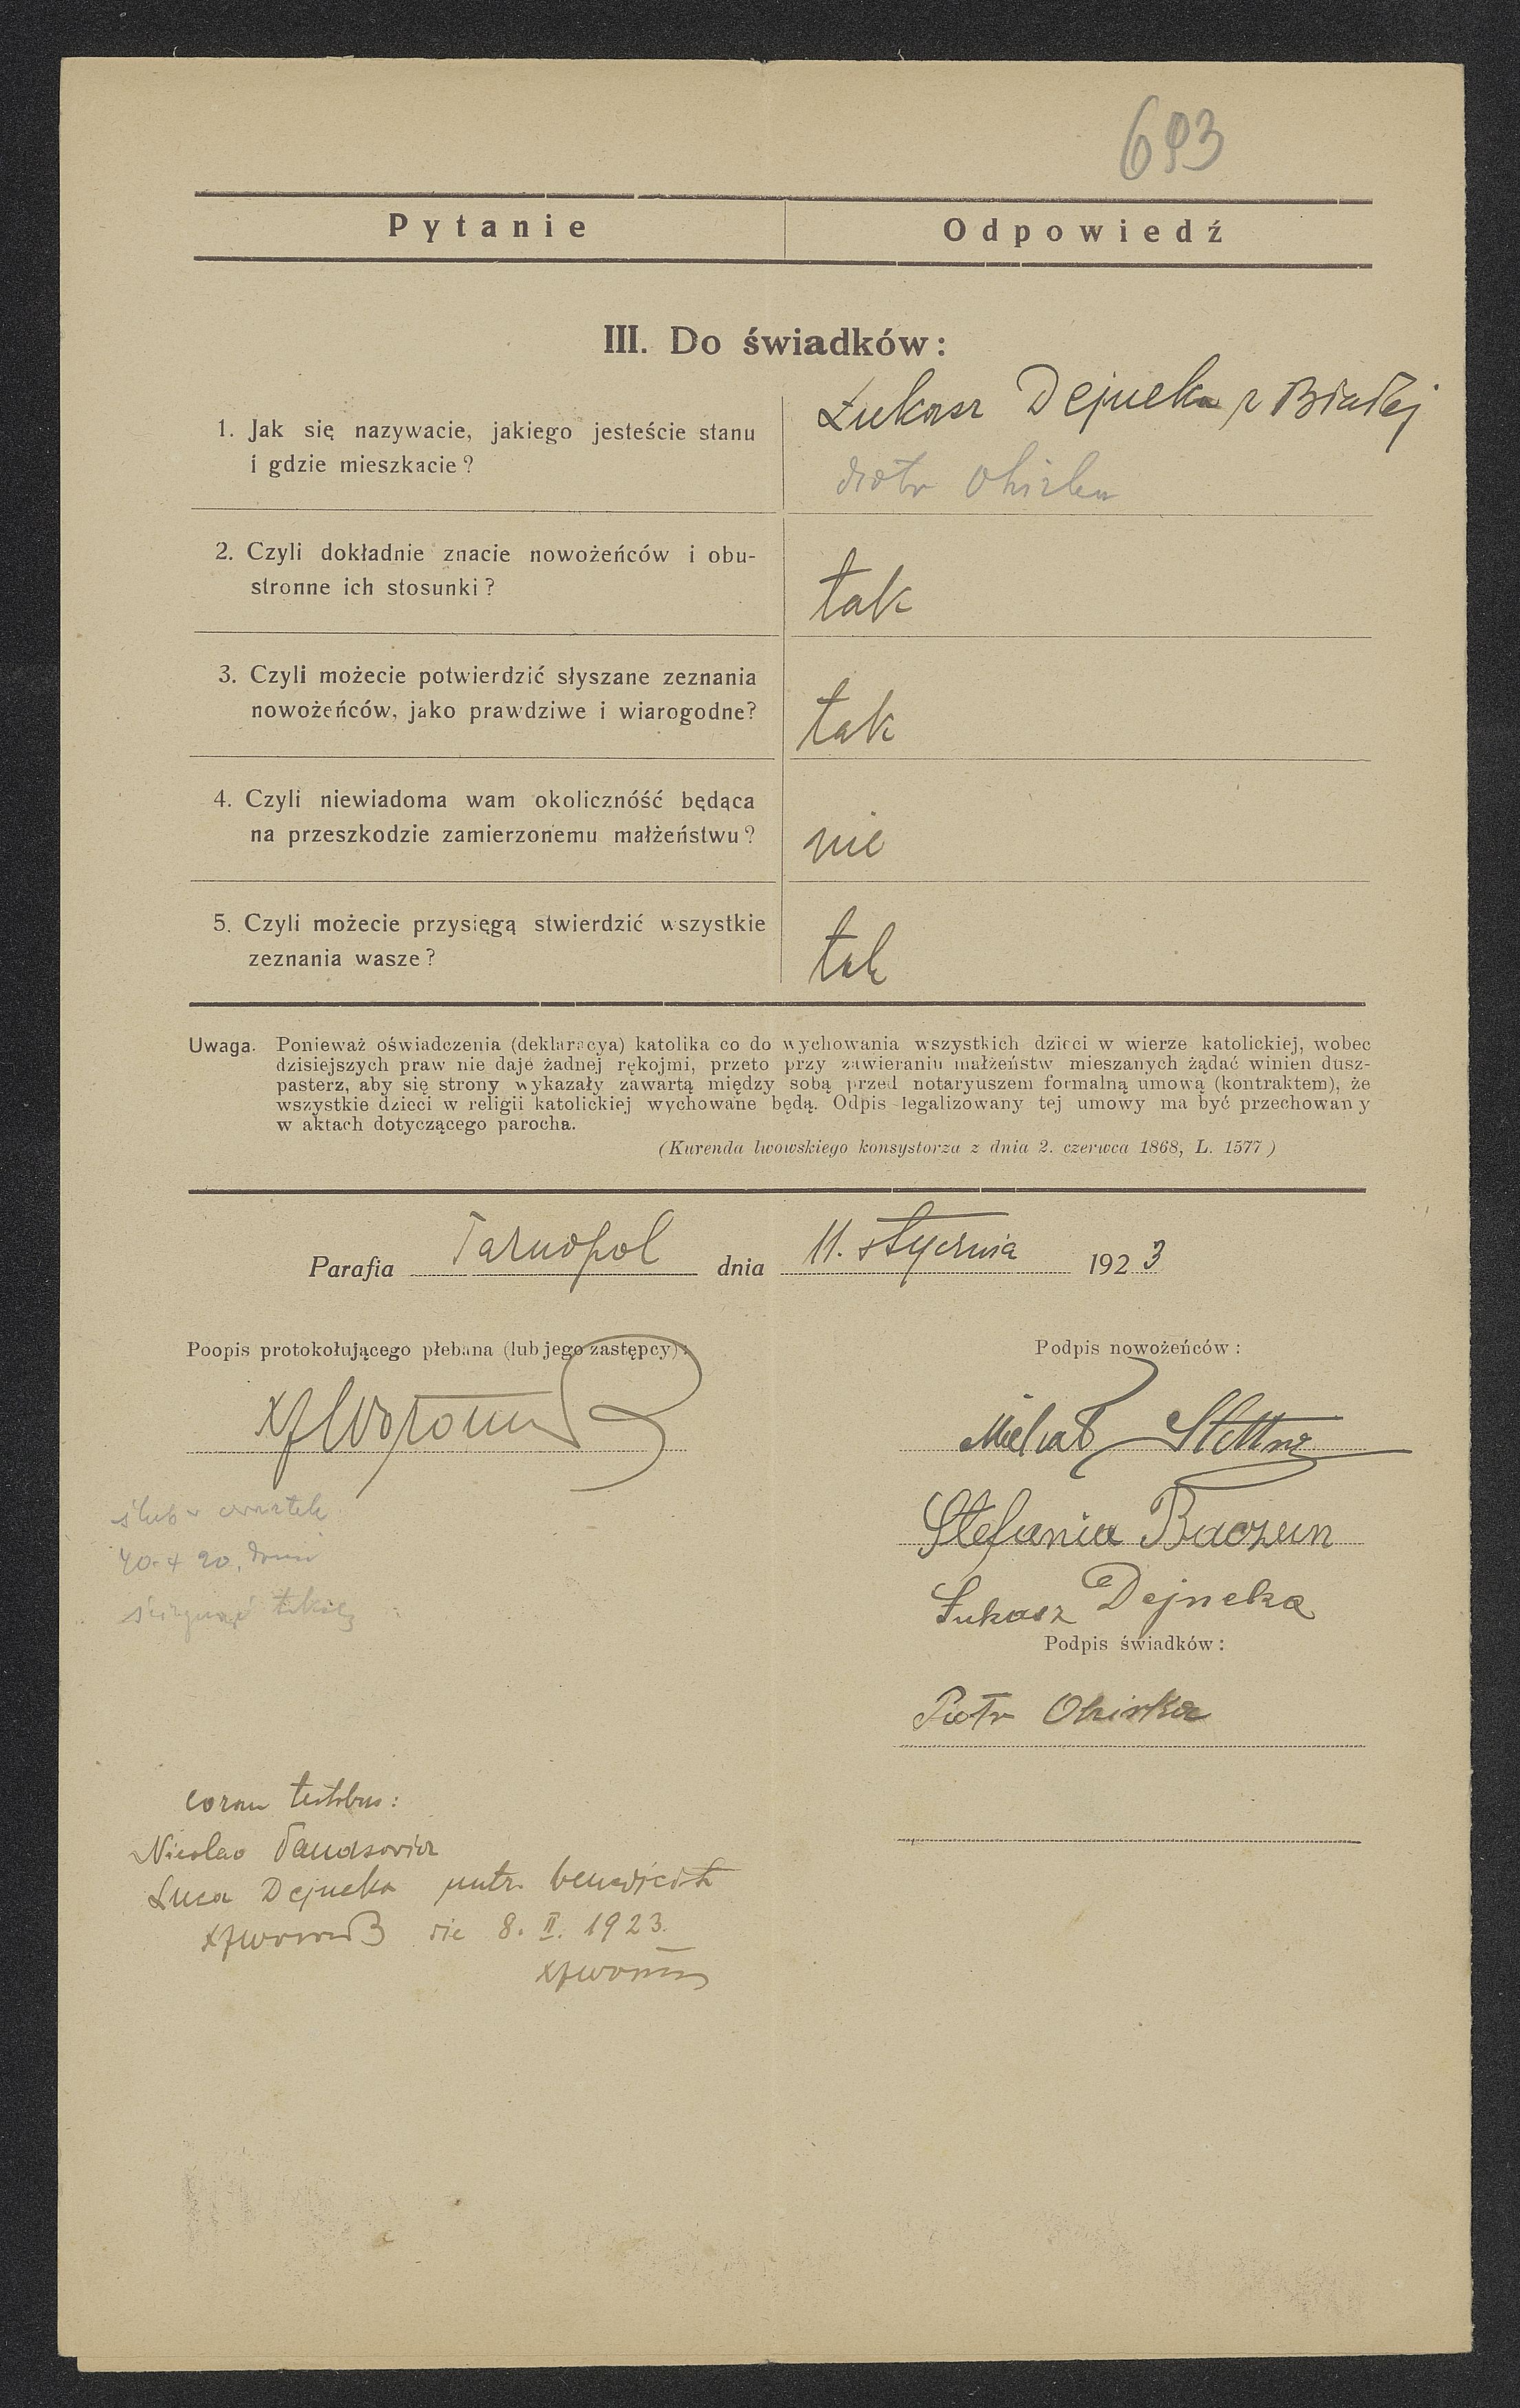 693
Pytanie
Odpowiedź
III. Do świadków:
1. Jak się nazywacie, jakiego jesteście stanu
i gdzie mieszkacie?
Łukasz Dejneka z Białej
Piotr
2. Czyli dokładnie znacie nowożeńców i obu-
stronne ich stosunki?
tak
3. Czyli możecie potwierdzić słyszane zeznania
nowożeńców, jako prawdziwe i wiarogodne?
tak
4. Czyli niewiadoma wam okolicznóść będąca
na przeszkodzie zamierzonemu małżeństwu?
nie
5. Czyli możecie przysięgą stwierdzić wszystkie
zeznania wasze?
tak
Uwaga. Ponieważ oświadczenia (deklaracya) katolika co do wychowania wszystkich dzieci w wierze katolickiej, wobec
dzisiejszych praw nie daje żadnej rękojmi, przeto przy zawieraniu małżeństw mieszanych żądać winien dusz-
pasterz, aby się strony wykazały zawartą między sobą przed notaryuszem formalną umową (kontraktem), że
wszystkie dzieci w religii katolickiej wychowane będą. Odpis legalizowany tej umowy ma być przechowany
w aktach dotyczącego parocha.
(Kurenda lwowskiego konsystorza z dnia 2. czerwca 1868, L. 1577)
Parafia Tarnopol dnia 11. stycznia 1923
Poopis protokołującego płebana (lub jego zastępcy):
Podpis nowożeńców:
Michał
Stefania Baczun
Łukasz Dejneka
Podpis świadków:
Piotr Ohirka
ślub w czwartek
coram testibus:
Nicolao
Luca Dejneka matr. benedixit
die 8. II. 1923.